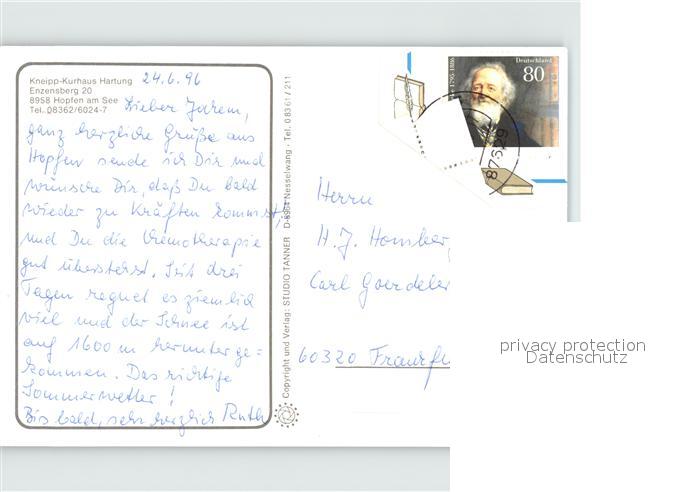 Kneipp-Kurhaus Hartung
Enzensberg 20
8958 Hopfen am See
Tel. 08362/6024-7
24.6.96
Lieber Jochem,
ganz herzliche Grüße aus
Hopfen sende ich Dir und
wünsche Dir, daß Du bald
wieder zu Kräften kommst,
und Du die Chemotherapie
gut überstehst. Seit drei
Tagen regnet es ziemlich
viel und der Schnee ist
auf 1600 m herunter ge=
kommen. Das richtige
Sommerwetter!
Bis bald, sehr herzlich Ruth
Copyright und Verlag: STUDIO TANNER D-8964 Nesselwang · Tel. 08361/211
1795-1886
Deutschland
80
Herrn
H. J. Homber
Carl Goerdeler
60320 Frankfu
privacy protection
Datenschutz